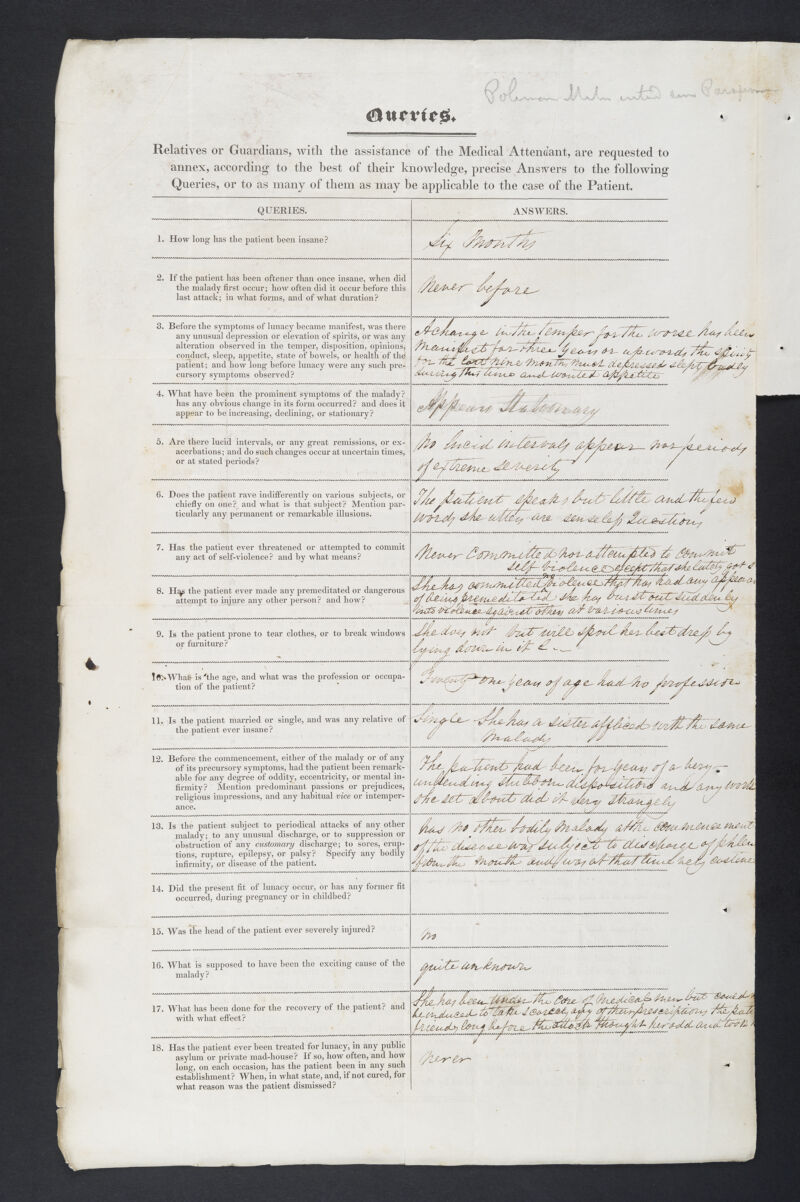 Queries.
Relatives or Guardians, with the assistance of the Medical Attendant, are requested to
annex, according to the best of their knowledge, precise Answers to the following
Queries, or to as many of them as may be applicable to the case of the Patient.
QUERIES.
ANSWERS.
1. How long has the patient been insane?
Six Months
2. If the patient has been oftener than once insane, when did
the malady first occur; how often did it occur before this
last attack; in what forms, and of what duration?
Never before
3. Before the symptoms of lunacy became manifest, was there
any unusual depression or elevation of spirits, or was any
alteration observed in the temper, disposition, opinions,
conduct, sleep, appetite, state of bowels, or health of the
patient; and how long before lunacy were any such pre-
cursory symptoms observed?
A change in the temper for the worse has been
manifest for three years or upwords the spirits
for the last nine months much depressed slept badly
during this time and wonted appetite
4. What have been the prominent symptoms of the malady?
has any obvious change in its form occurred? and does it
appear to be increasing, declining, or stationary?
Appears Stationary
5. Are there lucid intervals, or any great remissions, or ex-
acerbations; and do such changes occur at uncertain times,
or at stated periods?
No lucid intervals appear nor periods
of extreme severity
6. Does the patient rave indifferently on various subjects, or
chiefly on one? and what is that subject? Mention par-
ticularly any permanent or remarkable illusions.
The patient speaks but little and the few
words she utters are senseless Questions
7. Has the patient ever threatened or attempted to commit
any act of self-violence? and by what means?
Never Committed nor attempted to commit
self violence except that she lately got
8. Has the patient ever made any premeditated or dangerous
attempt to injure any other person? and how?
She has committed no violense that has had any appear
of being premeditated she has burst out suddenly
into violence against others at various times
9. Is the patient prone to tear clothes, or to break windows
or furniture?
She does not but will spoil her best dress by
lying down in it
10. What is the age, and what was the profession or occupa-
tion of the patient?
Twenty one years of age had no profession
11. Is the patient married or single, and was any relative of
the patient ever insane?
Single She has a sister afflicted with the same
malady
12. Before the commencement, either of the malady or of any
of its precursory symptoms, had the patient been remark-
able for any degree of oddity, eccentricity, or mental in-
firmity? Mention predominant passions or prejudices,
religious impressions, and any habitual vice or intemper-
ance.
The patient had been for years of a very
unbending stubborn disposition and any work
she set about did it very strangely
13. Is the patient subject to periodical attacks of any other
malady; to any unusual discharge, or to suppression or
obstruction of any customary discharge; to sores, erup-
tions, rupture, epilepsy, or palsy? Specify any bodily
infirmity, or disease of the patient.
has no other bodily malady at the commencement
of the disease was subject to discharge of
from the mouth and was at that time very costive
14. Did the present fit of lunacy occur, or has any former fit
occurred, during pregnancy or in childbed?
15. Was the head of the patient ever severely injured?
no
16. What is supposed to have been the exciting cause of the
malady?
quite unknown
17. What has been done for the recovery of the patient? and
with what effect?
She has been under the Care of Medical men but could
be induced to take scarcely any of their prescriptions the
friends long before the attack thought her odd and
18. Has the patient ever been treated for lunacy, in any public
asylum or private mad-house? If so, how often, and how
long, on each occasion, has the patient been in any such
establishment? When, in what state, and, if not cured, for
what reason was the patient dismissed?
Never